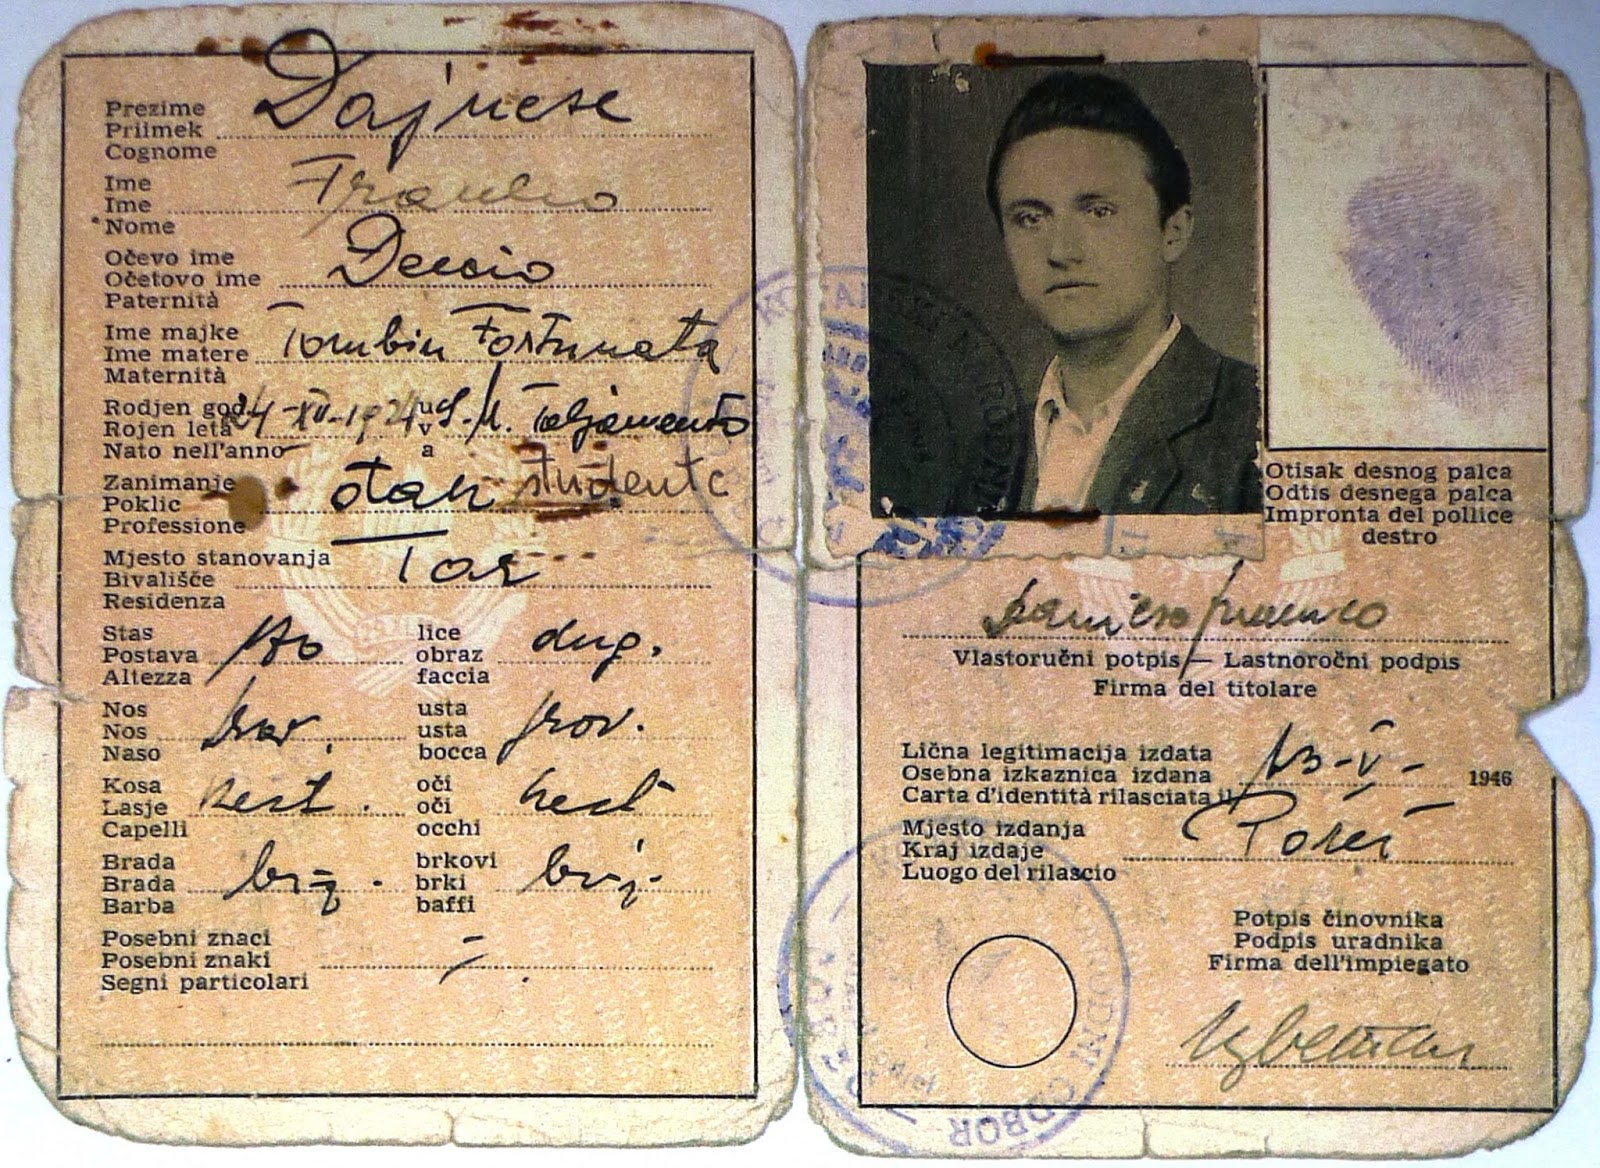 Prezime
Priimek
Cognome
Dajnese
Ime
Ime
Nome
Franko
Očevo ime
Očetovo ime
Paternità
Decio
Ime majke
Ime matere
Maternità
Tombin Fortunata
Rodjen god. u
Rojen leta v
Nato nell'anno a
24-XII-1924 S. M. Taljamento
Zanimanje
Poklic
Professione
studente
Mjesto stanovanja
Bivališče
Residenza
Tar
Stas lice
Postava obraz dug.
Altezza faccia
Nos usta
Nos usta prov.
Naso bocca
Kosa oči
Lasje kest. oči kest
Capelli occhi
Brada brkovi
Brada brij. brki brij.
Barba baffi
Posebni znaci
Posebni znaki
Segni particolari
–
Otisak desnog palca
Odtis desnega palca
Impronta del pollice
destro
Dainese Franco
Vlastoručni potpis — Lastnoročni podpis
Firma del titolare
Lična legitimacija izdata
Osebna izkaznica izdana 13-V- 1946
Carta d'identità rilasciata il
Mjesto izdanja
Kraj izdaje Poreč
Luogo del rilascio
Potpis činovnika
Podpis uradnika
Firma dell'impiegato
NARODNI ODBOR